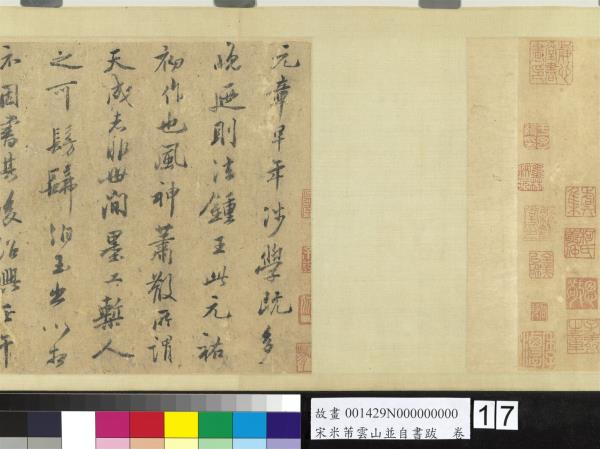 元章早年涉學既多
晚迺則法鍾王此元祐
初作也風神蕭散所謂
天成者非世間墨工槧人
之可髣髴伯玉出以相
示因書其後紹興壬午
故畫 001429N000000000
宋米芾雲山並自書跋 卷
17